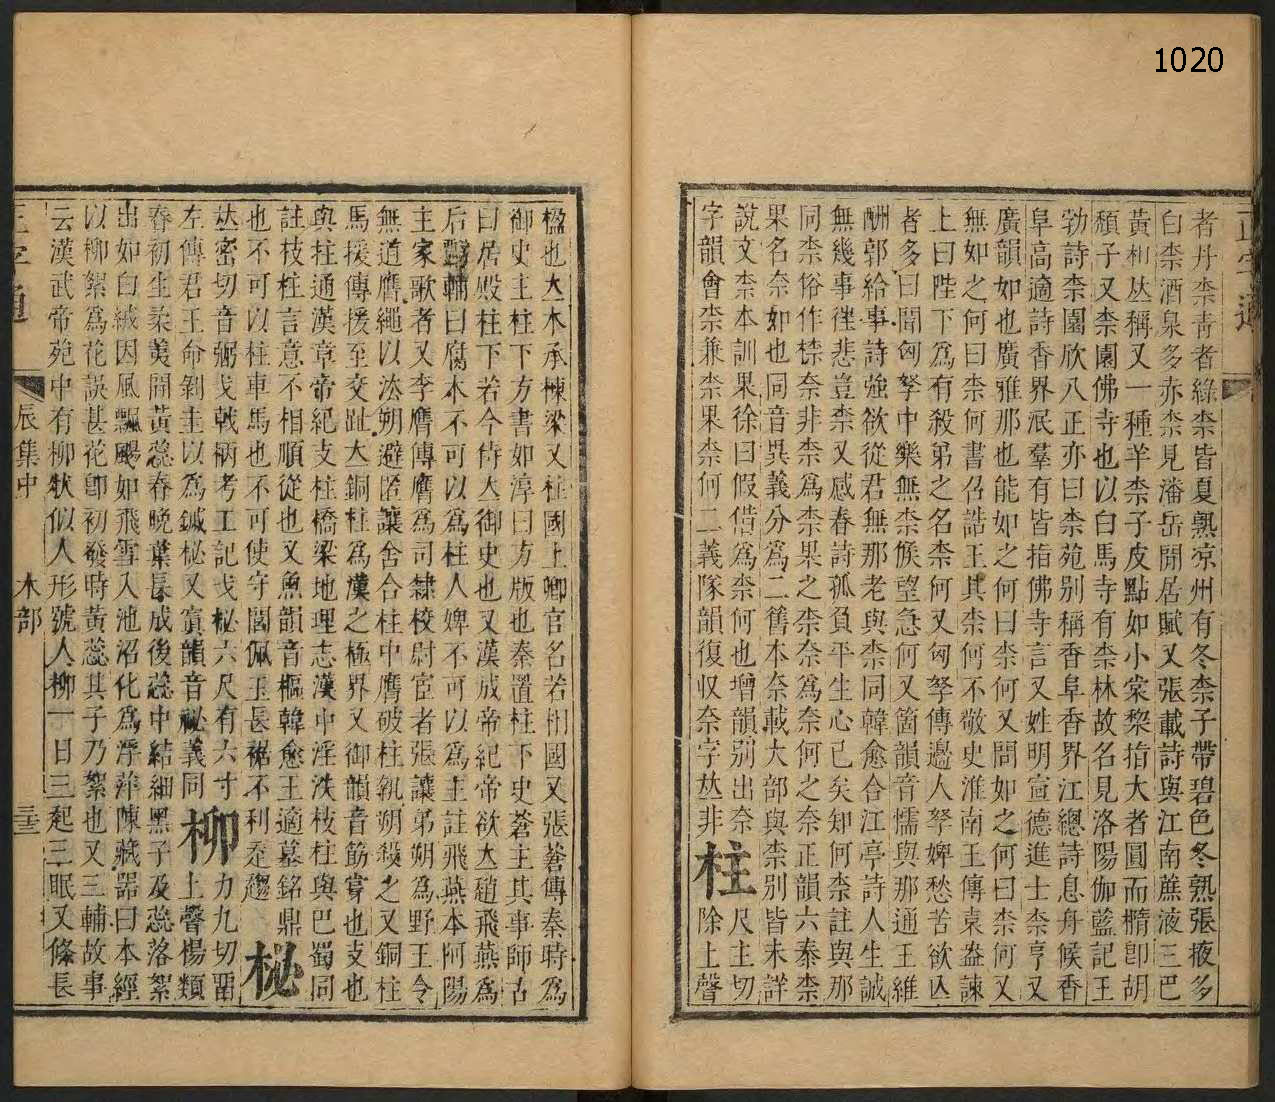 1020
者丹柰青者綠柰皆夏熟凉州有冬柰子帶碧色冬熟張掖多
白柰酒泉多赤柰見潘岳閒居賦又張載詩與江南蔗液三巴
黃柑丛稱又一種羊柰子皮點如小棠棃指大者圓而橢卽胡
頹子又柰園佛寺也以白馬寺有柰林故名見洛陽伽藍記王
勃詩柰園欣八正亦曰柰苑別稱香阜香界江總詩息舟候香
阜高適詩香界泯羣有皆指佛寺言又姓明宣德進士柰亨又
廣韻如也廣雅那也能如之何曰柰何又問如之何曰柰何又
無如之何曰柰何書召誥王其柰何不敬史淮南王傳袁盎諫
上曰陛下爲有殺弟之名柰何又匈孥傳邊人孥婢愁苦欲亾
者多曰聞匈孥中樂無柰候望急何又箇韻音懦與那通王維
酬郭給事詩強欲從君無那老與柰同韓愈合江亭詩人生誠
無幾事徃悲豈柰又感春詩孤負平生心已矣知何柰註與那
同柰俗作㮏奈非柰爲柰果之柰奈爲奈何之奈正韻六泰柰
果名奈如也同音異義分爲二舊本奈載大部與柰別皆未詳
說文柰本訓果徐曰假借爲柰何也增韻別出奈
字韻會柰兼柰果柰何二義隊韻復収奈字丛非
柱
尺主切
除上聲
楹也大木承棟梁又柱國上卿官名若相國又張蒼傳秦時爲
御史主柱下方書如淳曰方版也秦置柱下史蒼主其事師古
曰居殿柱下若今侍大御史也又漢成帝紀帝欲大趙飛燕爲
后劉輔曰腐木不可以爲柱人婢不可以爲主註飛燕本阿陽
主家歌者又李膺傳膺爲司隸校尉宦者張讓弟朔爲野王令
無道膺繩以法朔避匿讓舍合柱中膺破柱執朔殺之又銅柱
馬援傳援至交趾大銅柱爲漢之極界又御韻音筯嘗也支也
與柱通漢章帝紀支柱橋梁地理志漢中淫泆枝柱與巴蜀同
註枝柱言意不相順從也又魚韻音樞韓愈王適墓銘鼎
也不可以柱車馬也不可使守閽佩玉長裾不利走趨
柲
丛密切音弼戈戟柄考工記戈柲六尺有六寸
左傳君王命剝圭以爲鏚柲又寘韻音祕義同
柳
力九切畱
上聲楊類
春初生柔荑開黃蕊春晚葉長成後蕊中結細黑子及蕊落絮
出如白絨因風飄颺如飛雪入池沼化爲浮萍陳藏器曰本經
以柳絮爲花誤甚花卽初發時黃蕊其子乃絮也又三輔故事
云漢武帝苑中有柳狀似人形號人柳一日三起三眠又條長
正字通
辰集中
木部
三三